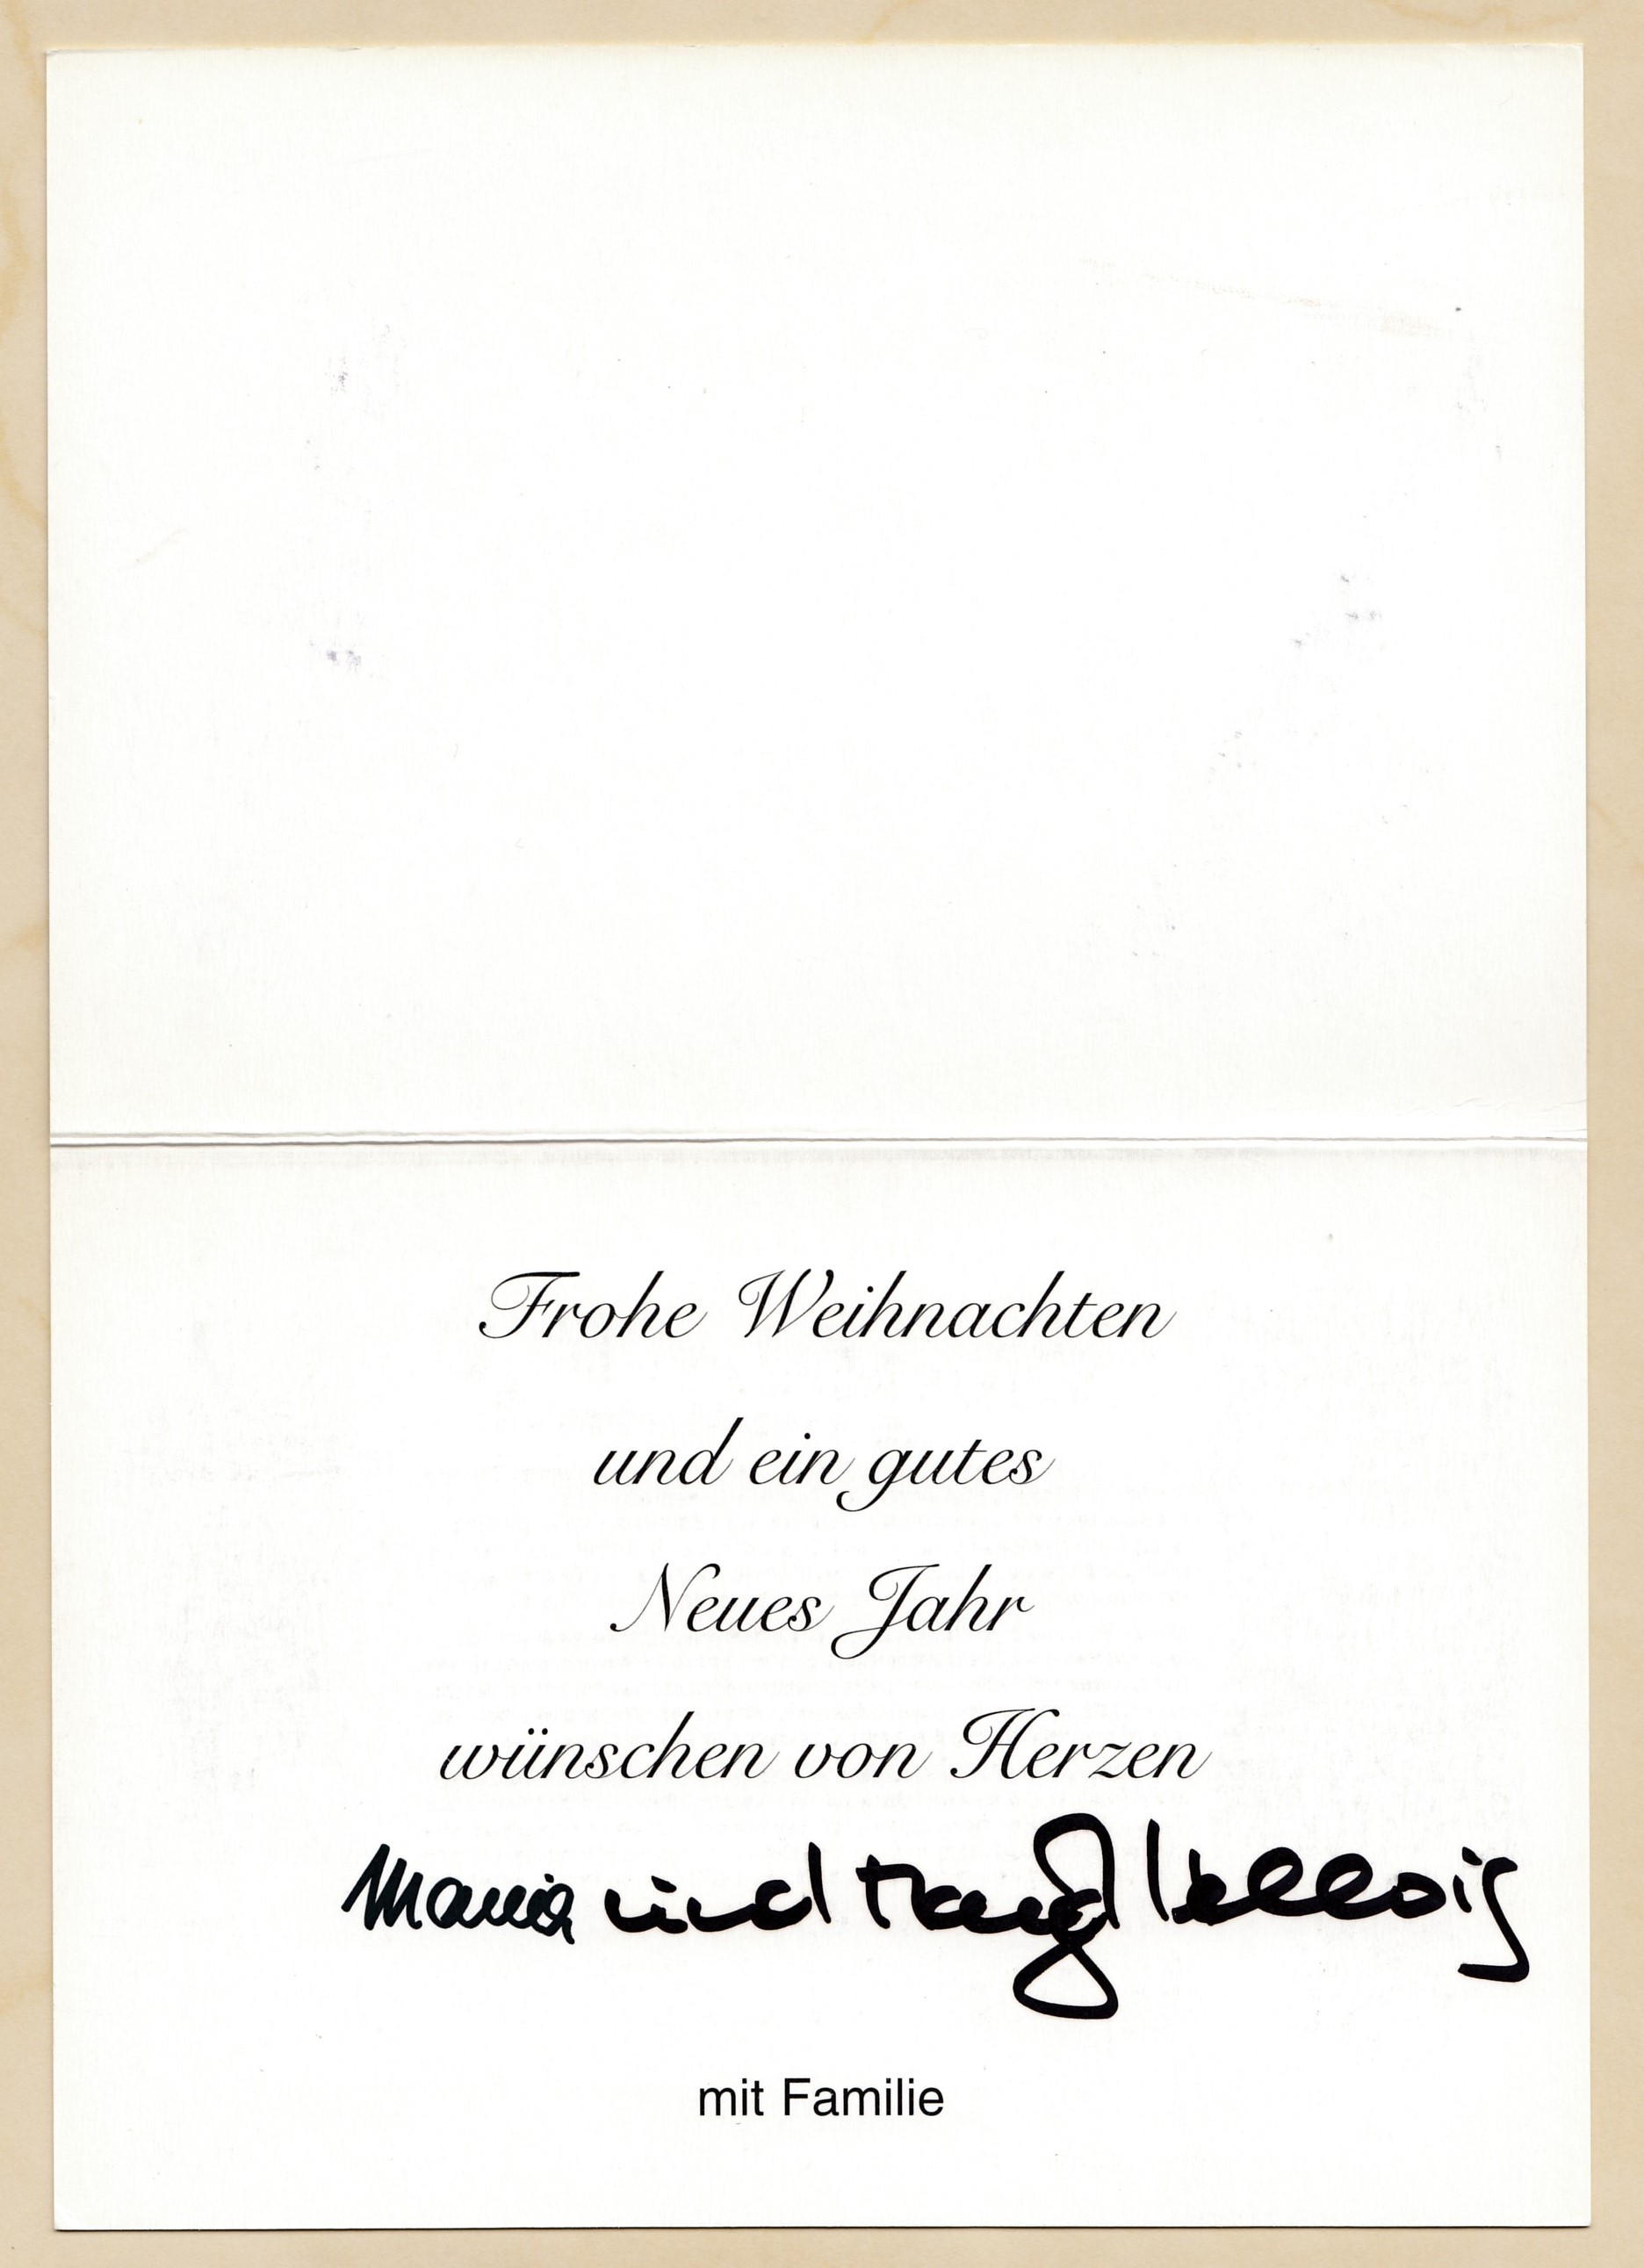 Frohe Weihnachten
und ein gutes
Neues Jahr
wünschen von Herzen
Maria und Margot Hellwig
mit Familie